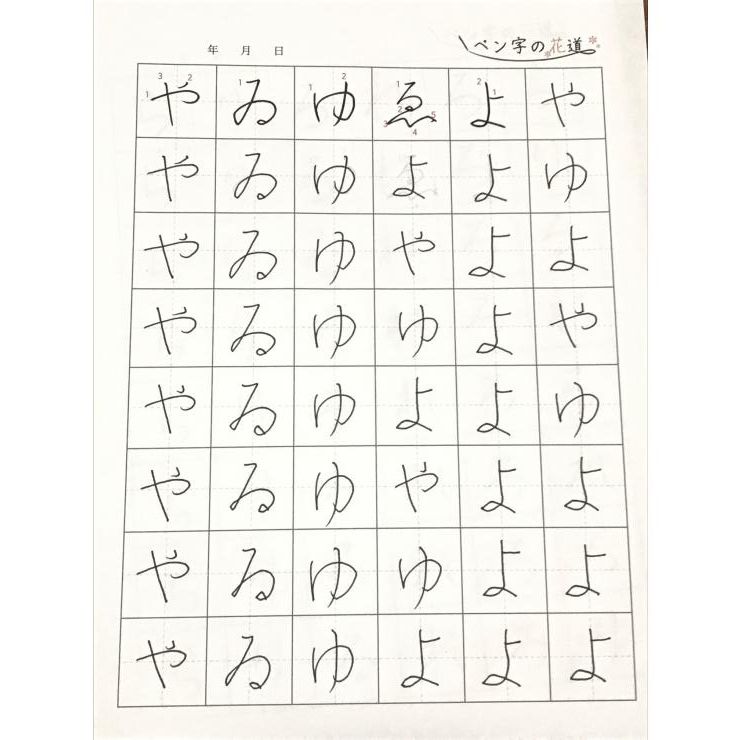 年 月 日
ペン字の花道
や ゐ ゆ ゑ よ や
や ゐ ゆ よ よ ゆ
や ゐ ゆ や よ よ
や ゐ ゆ ゆ よ や
や ゐ ゆ よ よ ゆ
や ゐ ゆ や よ よ
や ゐ ゆ ゆ よ よ
や ゐ ゆ よ よ よ